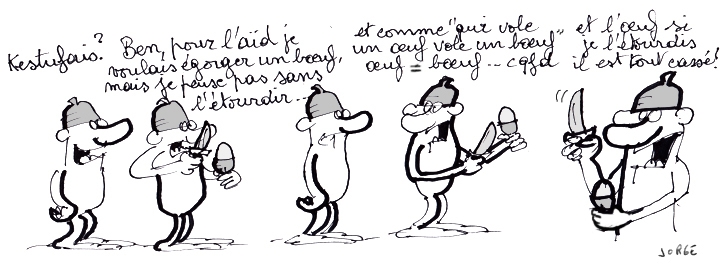 Kestufais?
Ben, pour l'aïd je
voulais égorger un bœuf,
mais je peux pas sans
l'étourdir...
et comme "qui vole
un œuf vole un bœuf"
œuf = bœuf... cqfd
et l'œuf si
je l'étourdis
il est tout cassé!
JORGE